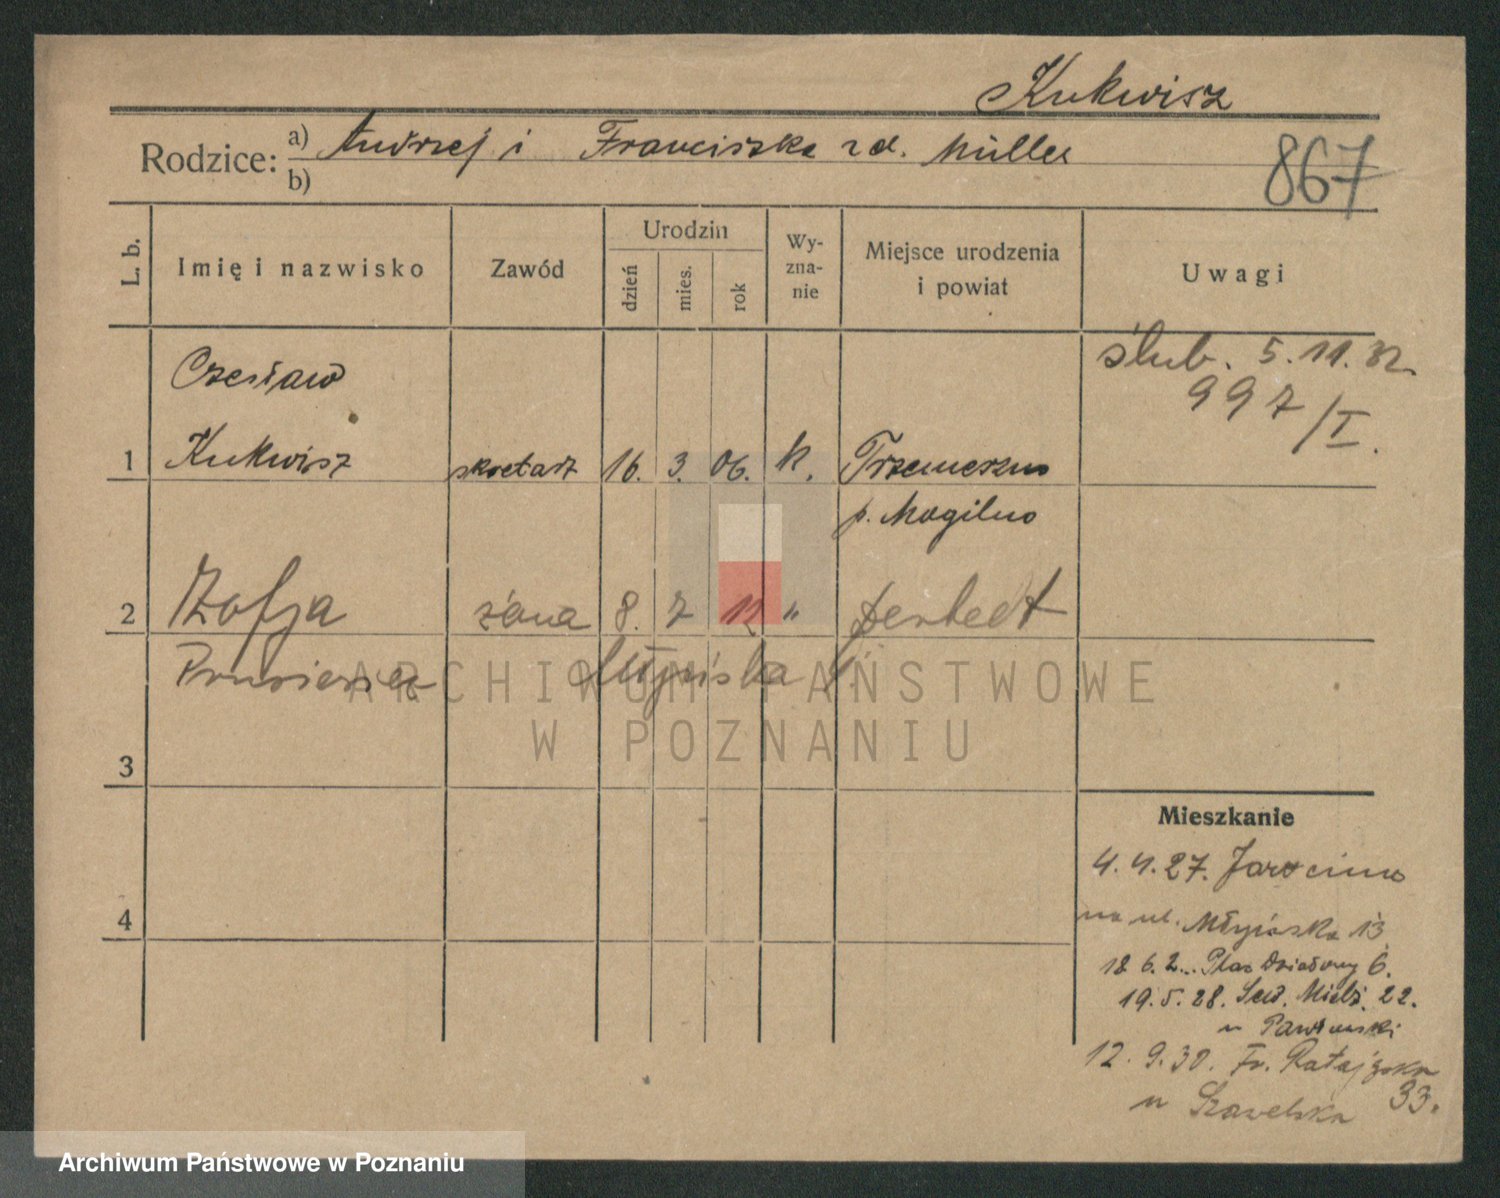 Kukwisz
Rodzice: a) Andrzej i Franciszka zd. Müller
b)
867
L. b.
Imię i nazwisko
Zawód
Urodzin
dzień
mies.
rok
Wy-
zna-
nie
Miejsce urodzenia
i powiat
Uwagi
ślub. 5.11.32.
997/I.
Czesław
1 Kukwisz skretarz 16. 3. 06. k. Trzemeszno
p. Mogilno
2 Zofja żona 8. 7 12 "
3
4
Mieszkanie
4.4.27. Jarocina
na ul. Młyńska 13
18 6. 2... Plac Działowy 6.
19.5.28. Sew. Mielż. 22.
u Pawłowski
12.9.30. Fr. Ratajczaka
u 33.
ARCHIWUM PAŃSTWOWE
W POZNANIU
Archiwum Państwowe w Poznaniu